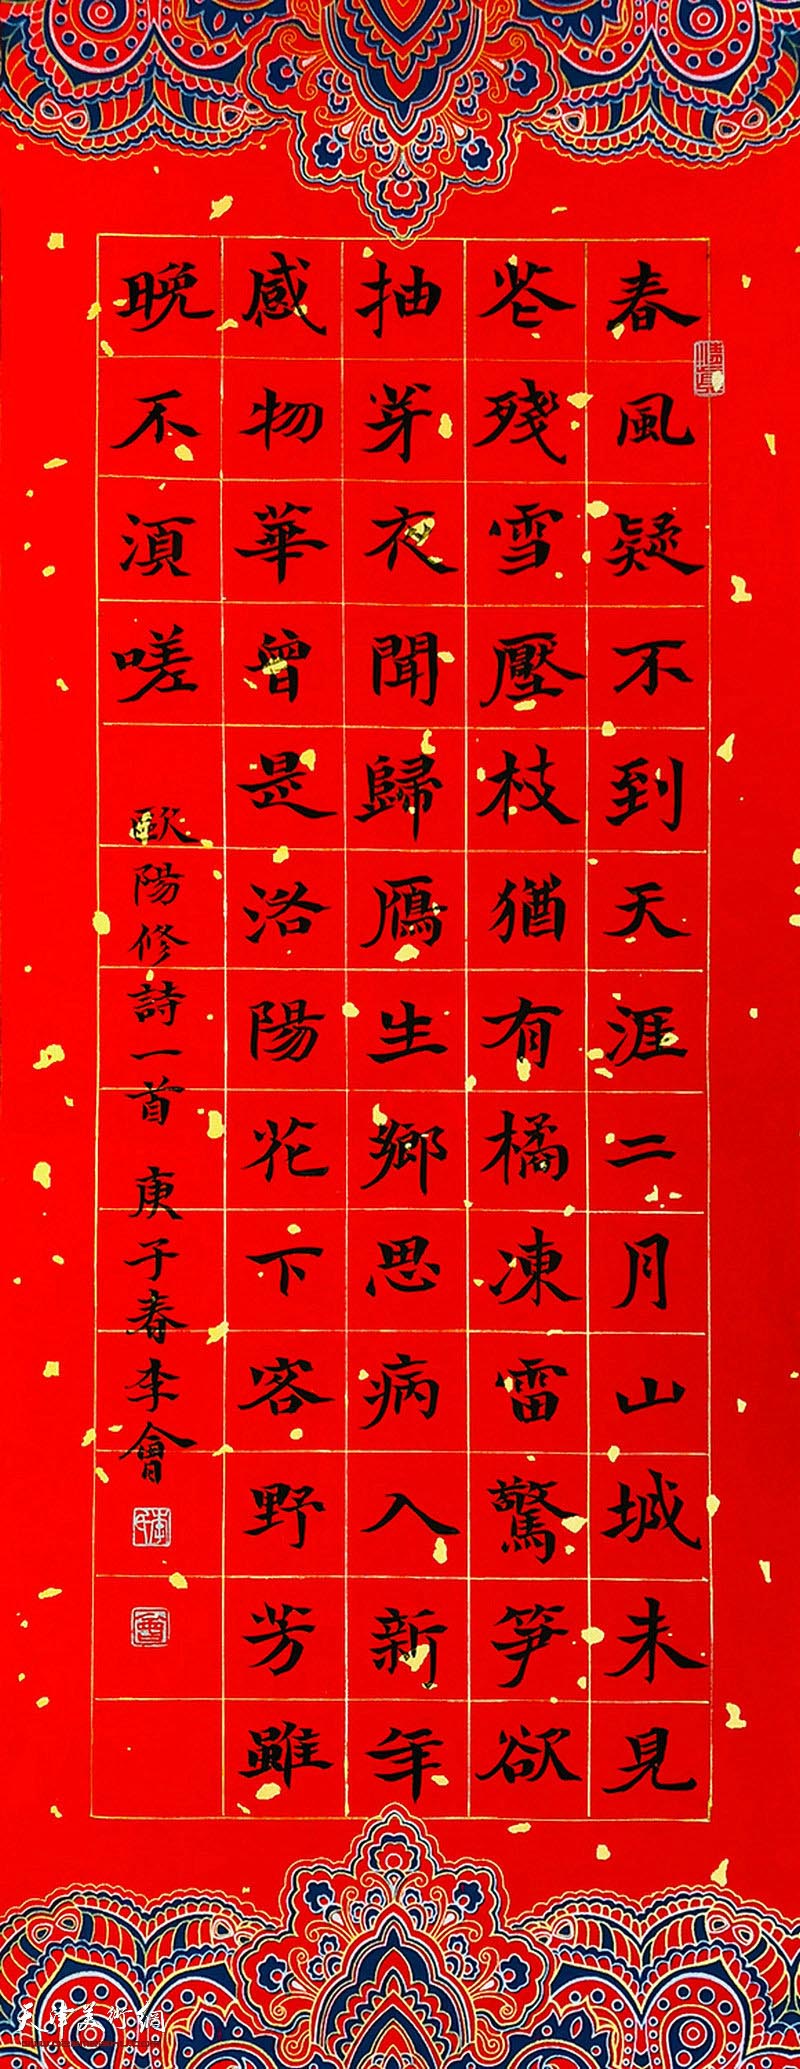 春風疑不到天涯二月山城未見
花殘雪壓枝猶有橘凍雷驚笋欲
抽芽夜聞歸鴈生鄉思病入新年
感物華曾是洛陽花下客野芳雖
晚不須嗟
歐陽修詩一首 庚子春李會
天津美術網